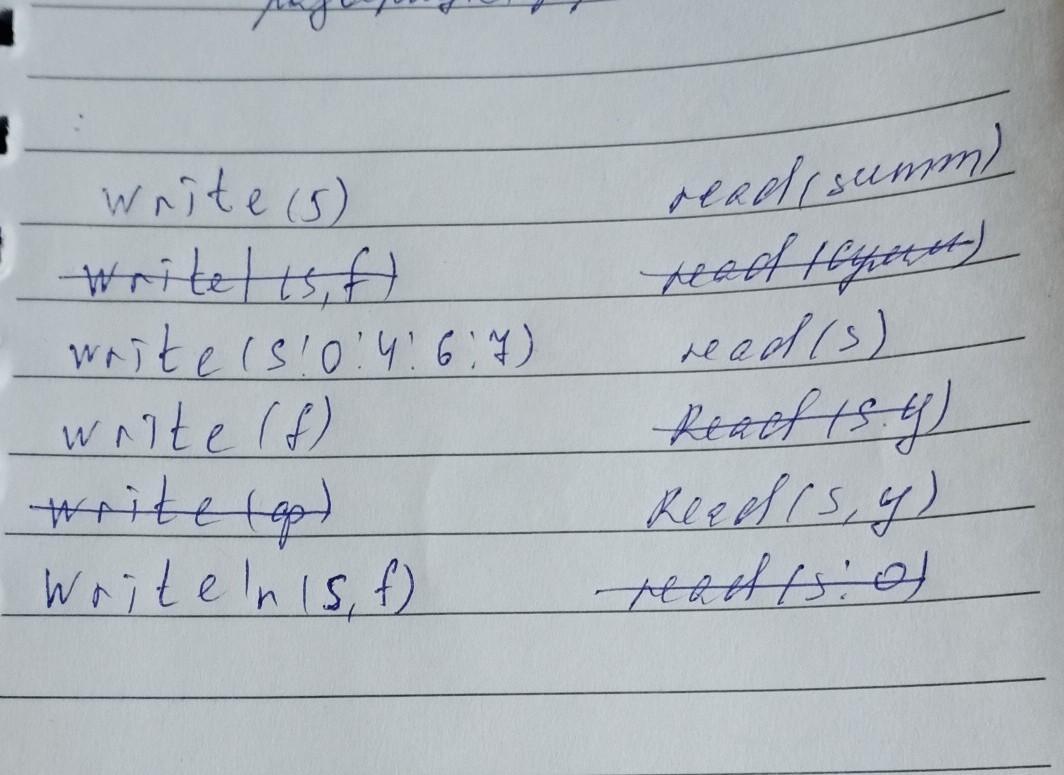 write (s) read (summ)
writel (s, f) read (сумм)
write (s:0:4:6:7) read (s)
write (f) Read (s.y)
write (ф) Read (s, y)
Writeln (s, f) read (s:0)